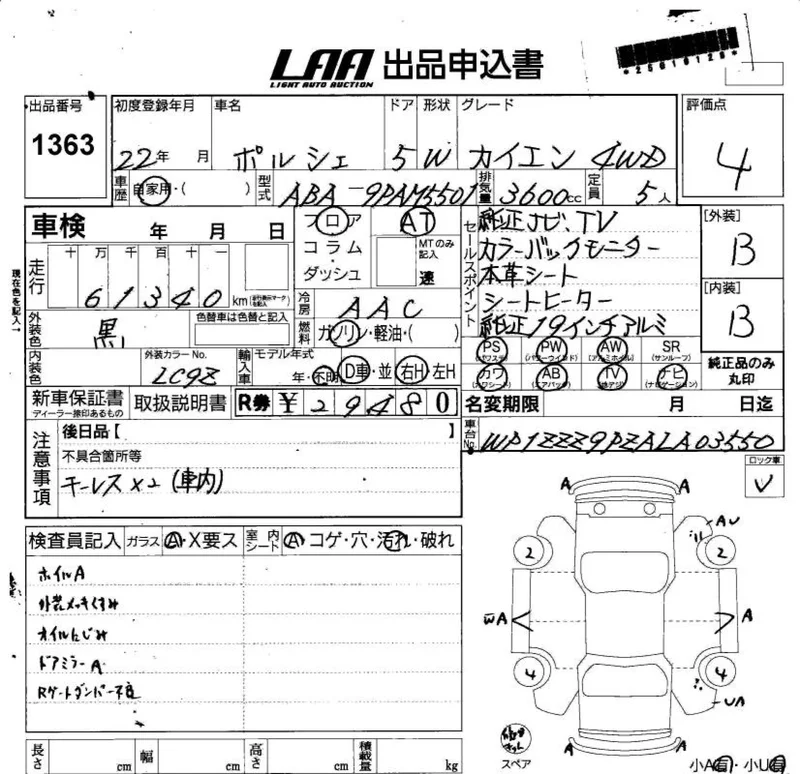 LAA 出品申込書
LIGHT AUTO AUCTION
*25610126*
出品番号 初度登録年月 車名 ドア 形状 グレード 評価点
1363 22年 月 ポルシェ 5 W カイエン 4WD 4
車歴 自家用・( ) 型式 ABA-9PAM5501 排気量 3600cc 定員 5人
車検 年 月 日 フロア AT
コラム・ MTのみ記入
ダッシュ 速
セールスポイント 純正ナビ、TV
カラーバックモニター
本革シート
シートヒーター
純正19インチアルミ
[外装] B
[内装] B
現在色を記入→
走行 十 万 千 百 十
61340 km
冷房 AAC
外装色 黒 色替車は色替と記入 燃料 ガソリン・軽油・( )
PS PW AW SR
(パワステ) (パワーウインド) (アルミホイル) (サンルーフ)
カワ AB TV ナビ
(カワシート) (エアバック) (地デジ) (ナビゲーション)
純正品のみ丸印
内装色 外装カラーNo. LC9Z 輸入車 モデル年式 年・不明 D車・並 右H・左H
新車保証書 取扱説明書 R券 ¥ 29480
ディーラー捺印あるもの
名変期限 月 日迄
車台No. WP1ZZZ9PZALA03550
注意事項 後日品【 】
不具合箇所等
キーレス×2 (車内)
ロック車
検査員記入 ガラス A・X要ス 室内シート A・コゲ・穴・汚れ・破れ
ホイルA
外装メッキくすみ
オイルにじみ
ドアミラーA
Rゲートダンパー不良
A A
AU
2 2
WA A
4 4
UA
A A
スペア
小A有・小U有
長さ cm 幅 cm 高さ cm 積載量 kg